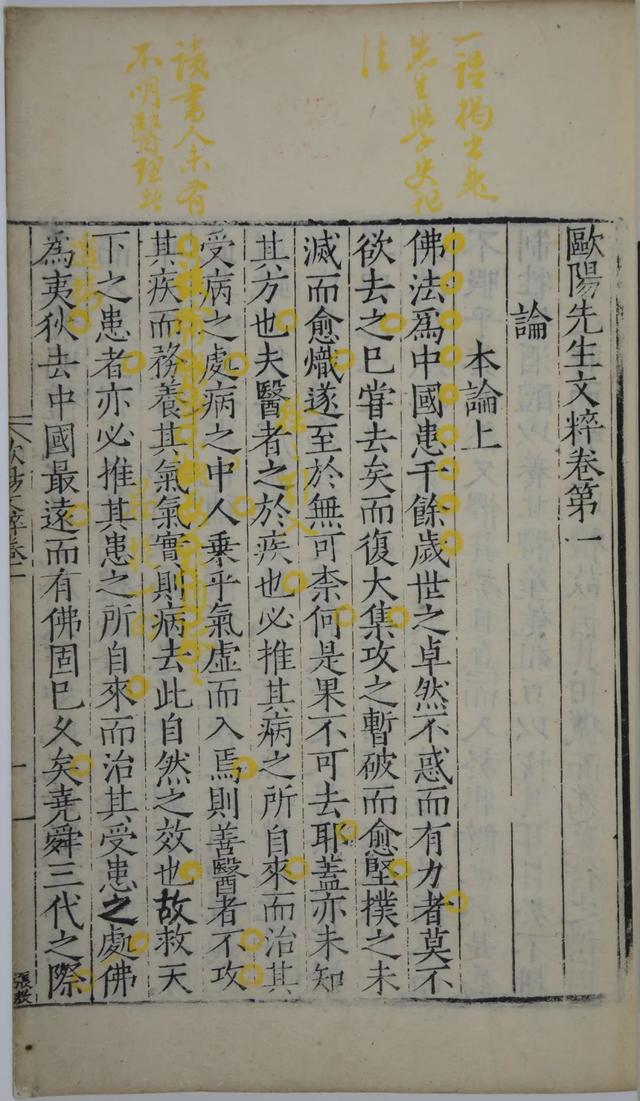 歐陽先生文粹卷第一
論
本論上
佛法爲中國患千餘歲世之卓然不惑而有力者莫不
欲去之已甞去矣而復大集攻之暫破而愈堅撲之未
滅而愈熾遂至於無可柰何是果不可去耶蓋亦未知
其方也夫醫者之於疾也必推其病之所自來而治其
受病之處病之中人乗乎氣虛而入焉則善醫者不攻
其疾而務養其氣氣實則病去此自然之效也故救天
下之患者亦必推其患之所自來而治其受患之處佛
為夷狄去中國最遠而有佛固已久矣堯舜三代之際
一語揭出是
先生學史記
法
讀書人未有
不明醫理者
一